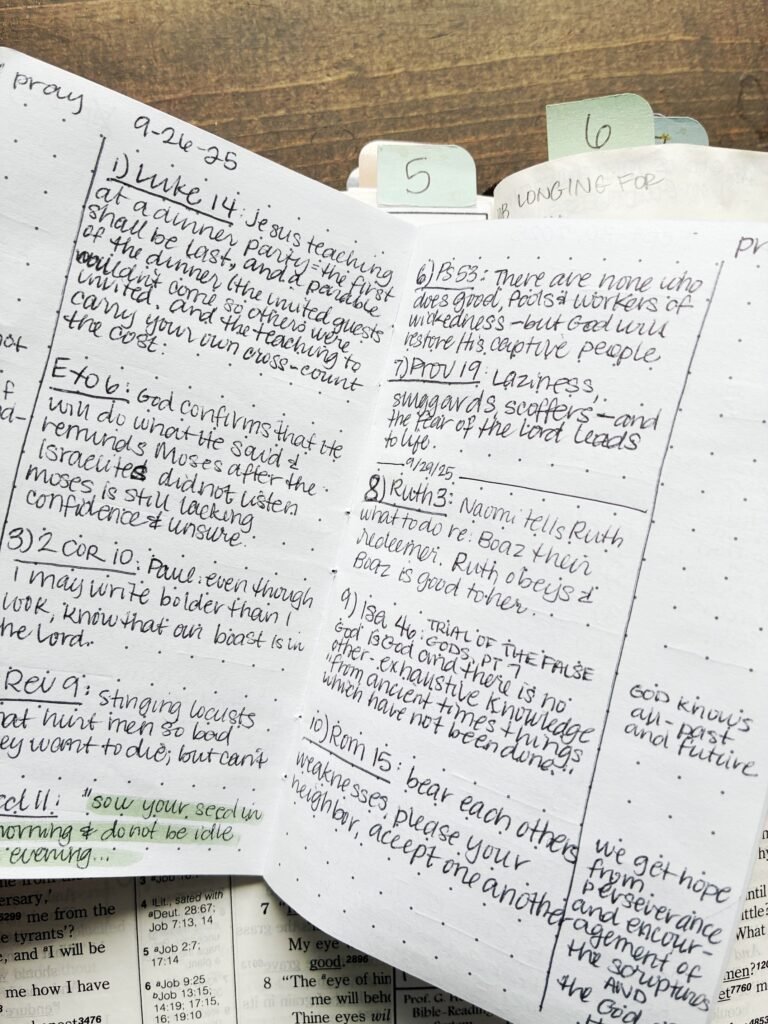 pray
9-26-25
1) Luke 14: Jesus teaching
at a dinner party = the first
shall be last, and a parable
of the dinner (the invited guests
wouldn't come so others were
invited. And the teaching to
carry your own cross - count
the cost.
Exo 6: God confirms that He
will do what He said &
reminds Moses after the
Israelites did not listen
Moses is still lacking
confidence & unsure.
3) 2 Cor 10: Paul: even though
I may write bolder than I
look, know that our boast is in
the Lord.
Rev 9: stinging locusts
hat hurt men so bad
ey want to die; but can't
ccl 11: "sow your seed in
morning & do not be idle
evening...
5
6
LONGING FOR
6) Ps 53: There are none who
does good, Fools & workers of
wickedness - but God will
restore His captive people
7) Prov 19: Laziness,
sluggards, scoffers - and
the fear of the Lord leads
to life.
9/29/25
8) Ruth 3: Naomi tells Ruth
what to do re: Boaz their
redeemer. Ruth obeys &
Boaz is good to her.
9) Isa 46: TRIAL OF THE FALSE
GODS, PT 7
God is God and there is no
other - exhaustive knowledge
"from ancient times things
which have not been done..."
10) Rom 15: bear each others
weaknesses, please your
neighbor, accept one another
pr
GOD KNOWS
all - past
and future
we get hope
from
perseverance
and encour-
agement of
the scriptures
AND
the God
ersary,'
5299 me from the
e tyrants'?
e, and aI will be
me how I have
3476
4 1Lit., sated with
aDeut. 28:67;
Job 7:13, 14
5 aJob 2:7;
17:14
6 aJob 9:25
bJob 13:15;
14:19; 17:15,
16; 19:10
7
My eye
good.2896
8 "The aeye of him
me will beho
Thine eyes wil
Prof. G.
Bible-Reading
until
ttle?
What
men?
et7760 my